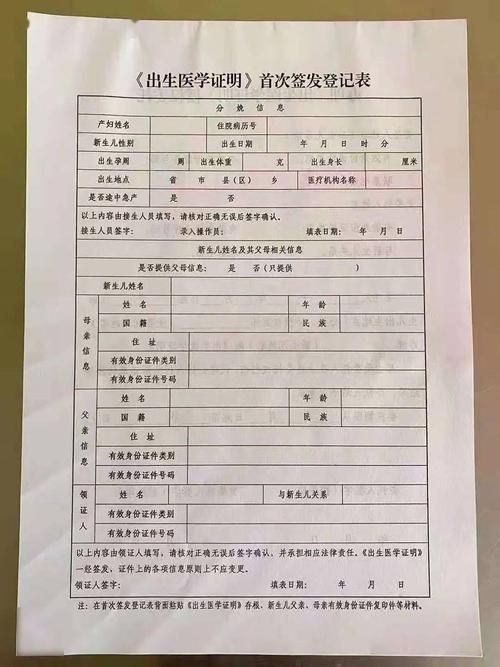 《出生医学证明》首次签发登记表
分 娩 信 息
产妇姓名 住院病历号
新生儿性别 出生日期 年 月 日 时 分
出生孕周 周 出生体重 克 出生身长 厘米
出生地点 省 市 县(区) 乡 医疗机构名称
是否途中急产 是 否
以上内容由接生人员填写,请核对正确无误后签字确认。
接生人员签字: 录入操作员: 填表日期: 年 月 日
新生儿姓名及其父母相关信息
是否提供父母信息: 是 否(只提供 )
新生儿姓名
母亲信息
姓 名 年 龄
国 籍 民 族
住 址
有效身份证件类别
有效身份证件号码
父亲信息
姓 名 年 龄
国 籍 民 族
住 址
有效身份证件类别
有效身份证件号码
领证人
姓 名 与新生儿关系
有效身份证件类别
有效身份证件号码
以上内容由领证人填写,请核对正确无误后签字确认,并承担相应法律责任。《出生医学证明》
一经签发,证件上的各项信息原则上不应变更。
领证人签字: 填表日期: 年 月 日
注:在首次签发登记表背面粘贴《出生医学证明》存根、新生儿父亲、母亲有效身份证件复印件等材料。